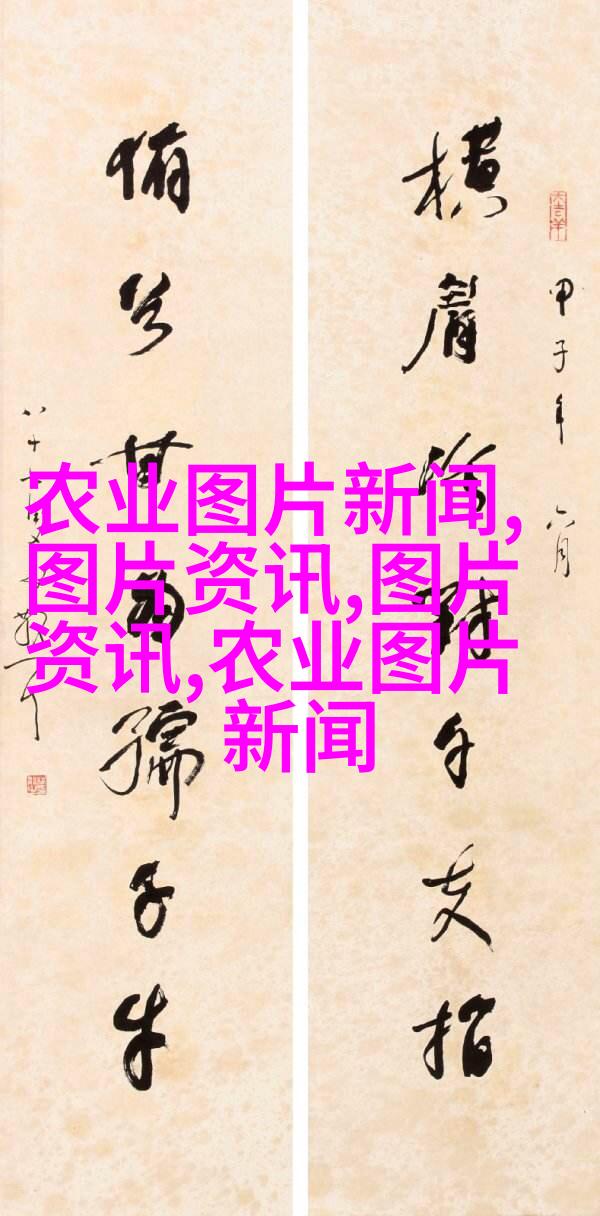 甲子年六月
橫眉冷對千夫指
俯首甘為孺子牛
八十
农业图片新闻,
图片资讯,图片
资讯,农业图片
新闻